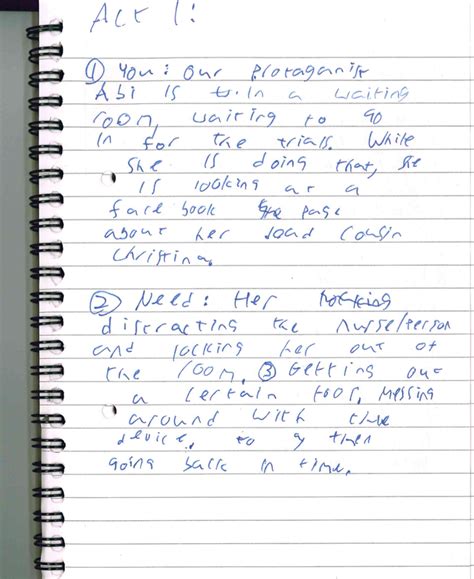 Act 1:
① You: Our protaganist
Abi is in a waiting
room, waiting to go
in for the trials. While
she is doing that, she
is looking at a
face book page
about her dead cousin
Christina.
② Need: Her
distracting the nurse/person
and locking her out of
the room. ③ Getting out
a certain tool, messing
around with the
device, to then
going back in time.